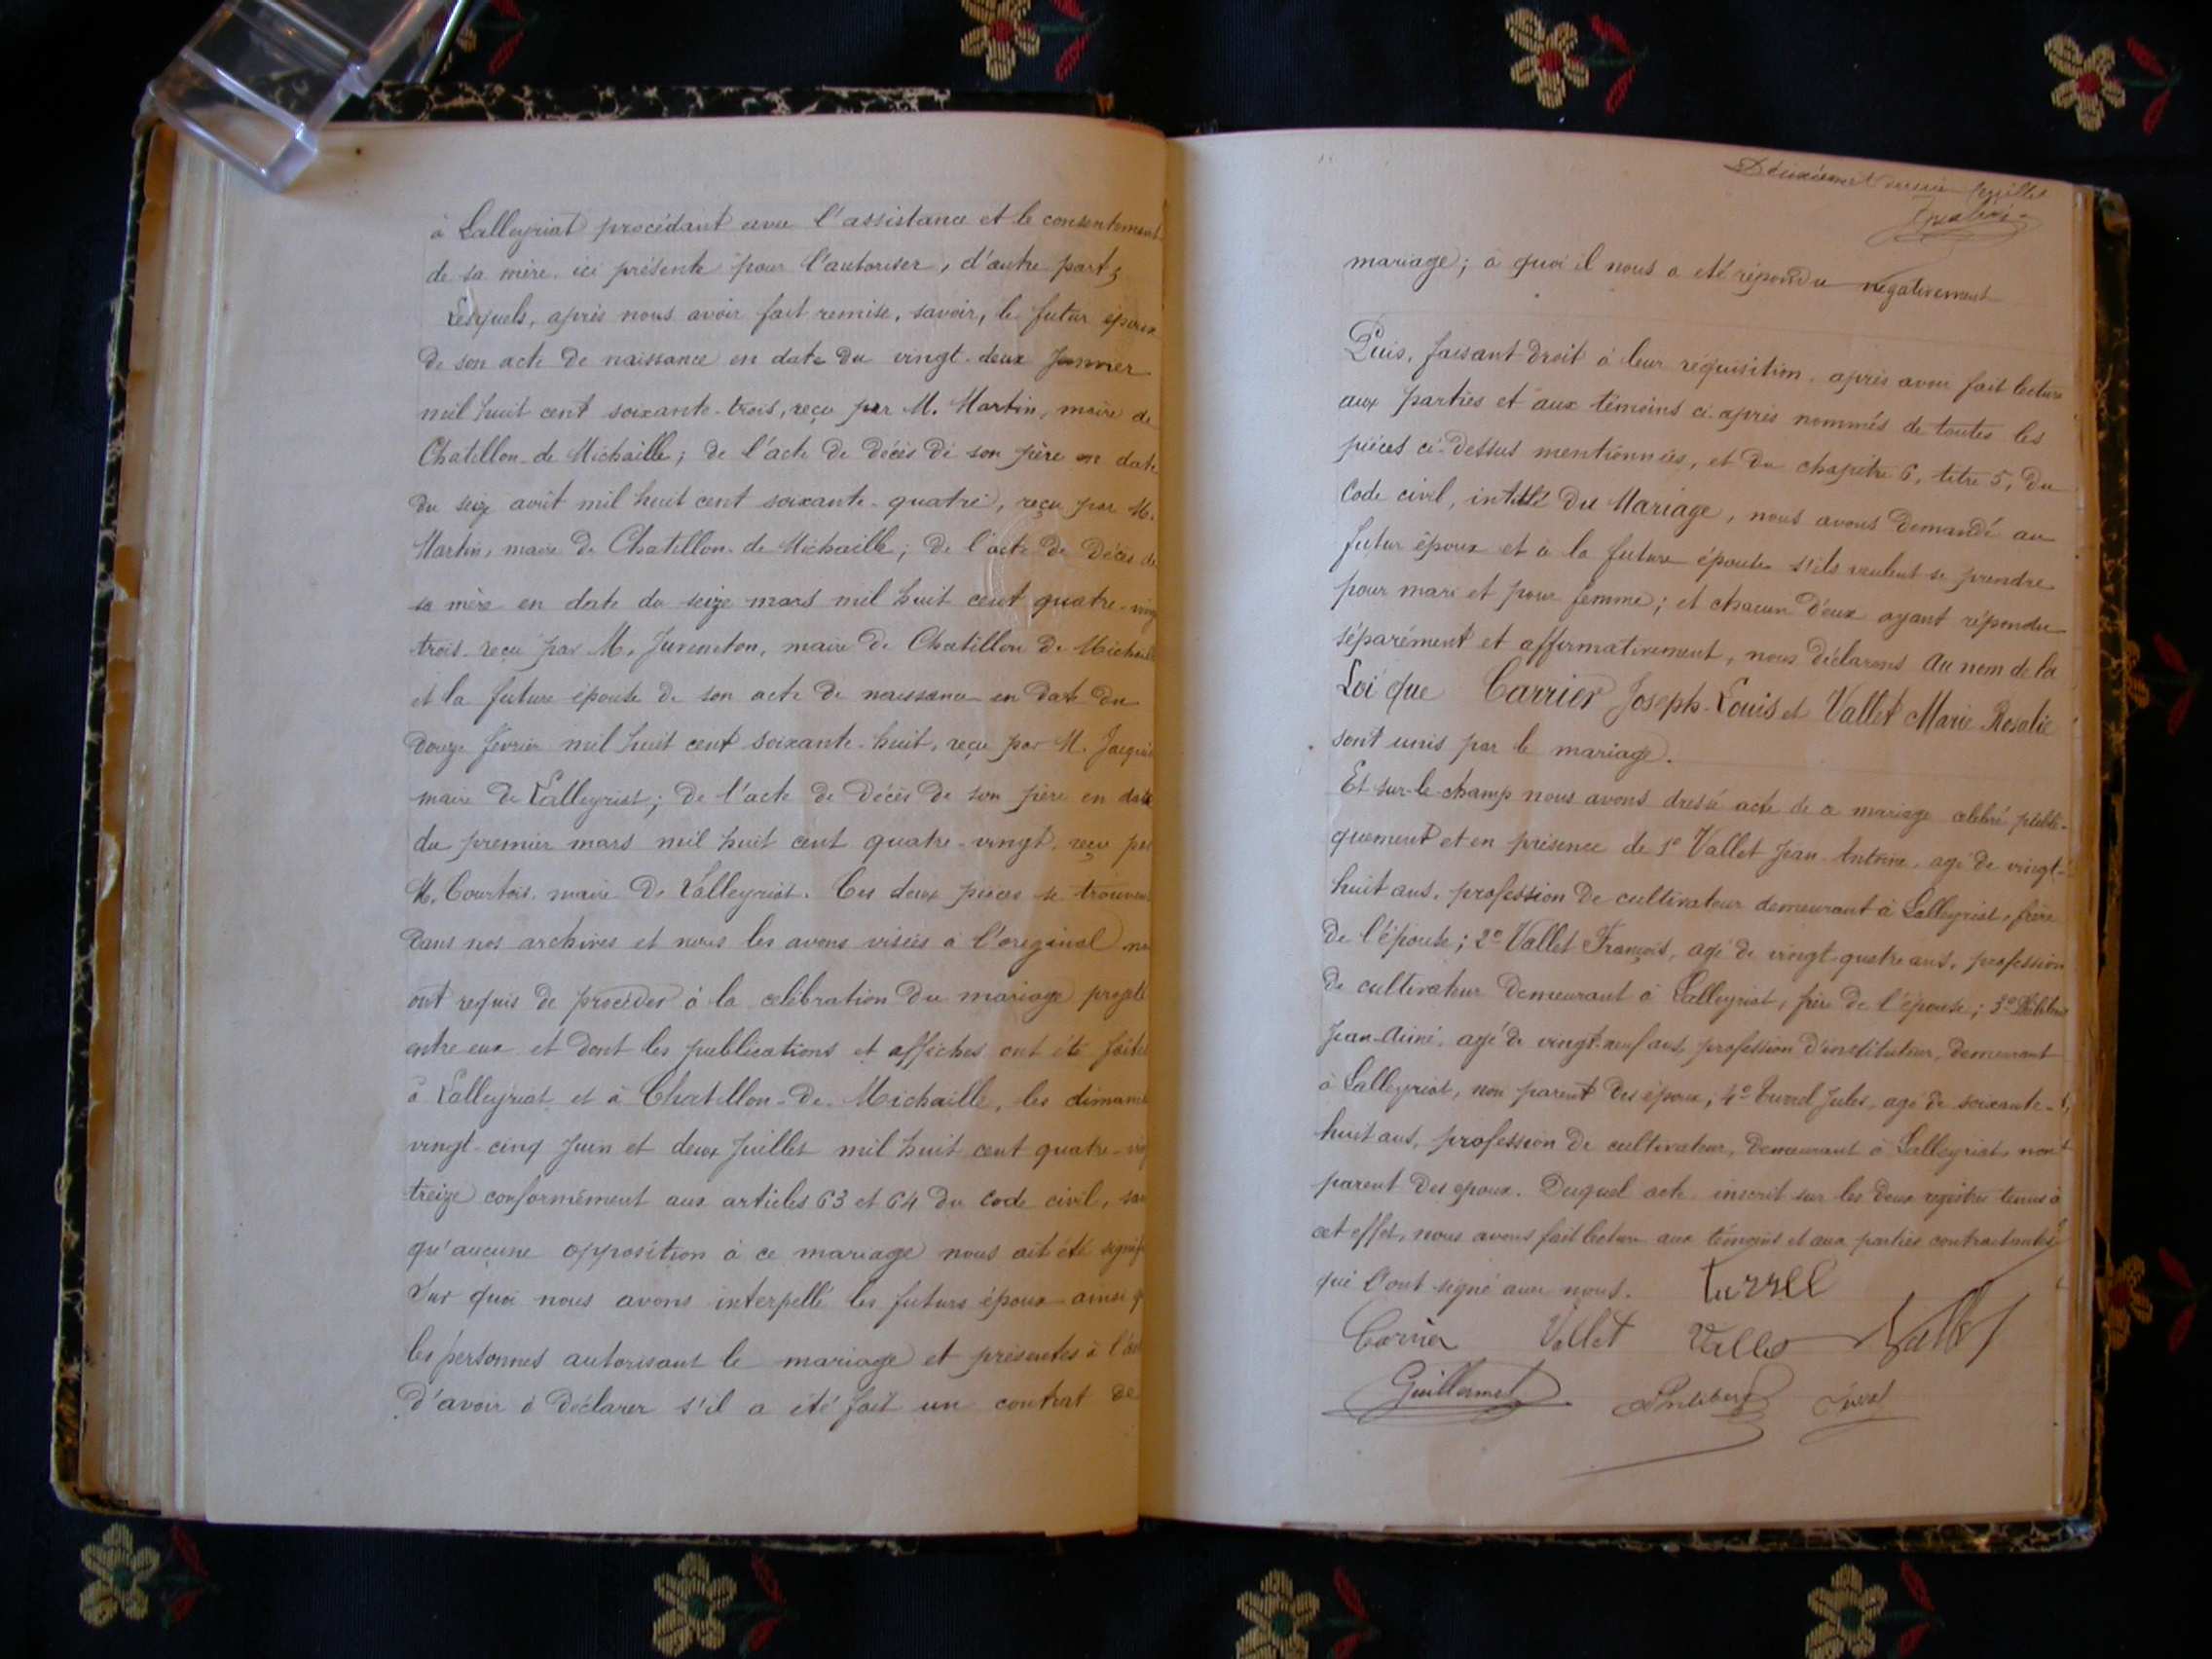 à Lalleyriat procédant avec l'assistance et le consentement
de sa mère ici présente pour l'autoriser, d'autre part;
Lesquels, après nous avoir fait remise, savoir, le futur époux
de son acte de naissance en date du vingt-deux Janvier
mil huit cent soixante-trois, reçu par M. Martin, maire de
Chatillon-de-Michaille; de l'acte de décès de son père en date
du seize août mil huit cent soixante-quatre, reçu par M.
Martin, maire de Chatillon-de-Michaille; de l'acte de décès de
sa mère en date du seize mars mil huit cent quatre-ving
trois reçu par M. maire de Chatillon de Michaill
et la future épouse de son acte de naissance en date du
douze février mil huit cent soixante-huit, reçu par M.
maire de Lalleyriat; de l'acte de décès de son père en date
du premier mars mil huit cent quatre-vingt, reçu par
M. Courtois, maire de Lalleyriat. Ces deux pièces se trouvent
dans nos archives et nous les avons visées à l'original
ont requis de procéder à la célébration du mariage projeté
entre eux et dont les publications et affiches ont été faites
à Lalleyriat et à Chatillon-de-Michaille, les dimanc
vingt-cinq Juin et deux Juillet mil huit cent quatre-vin
treize conformément aux articles 63 et 64 du Code civil, san
qu'aucune opposition à ce mariage nous ait été signifi
Sur quoi nous avons interpellé les futurs époux ainsi q
les personnes autorisant le mariage et présentes à l'
d'avoir à déclarer s'il a été fait un contrat de
Deuxième et dernier feuillet
mariage; à quoi il nous a été répondu négativement
Puis, faisant droit à leur réquisition, après avoir fait lecture
aux parties et aux témoins ci-après nommés de toutes les
pièces ci-dessus mentionnées, et du chapitre 6, titre 5, du
Code civil, intitulé Du Mariage, nous avons demandé au
futur époux et à la future épouse s'ils veulent se prendre
pour mari et pour femme; et chacun d'eux ayant répondu
séparément et affirmativement, nous déclarons Au nom de la
Loi que Carrier Joseph-Louis et Vallet Marie Rosalie
sont unis par le mariage.
Et sur-le-champ nous avons dressé acte de ce mariage célébré publi-
quement et en présence de 1° Vallet Jean-Antoine, agé de vingt-
huit ans, profession de cultivateur demeurant à Lalleyriat, frère
de l'épouse; 2° Vallet François, agé de vingt-quatre ans, profession
de cultivateur demeurant à Lalleyriat, frère de l'épouse; 3° Philibert
Jean-Aimé, agé de vingt-neuf ans, profession d'instituteur, demeurant
à Lalleyriat, non parent des époux; 4° Turrel Jules, agé de soixante-
huit ans, profession de cultivateur, demeurant à Lalleyriat, non
parent des époux. Duquel acte inscrit sur les deux registres tenus à
cet effet, nous avons fait lecture aux témoins et aux parties contractantes
qui l'ont signé avec nous. Turrel
Carrier Vallet Vallet Vallet
Guillermet Philibert